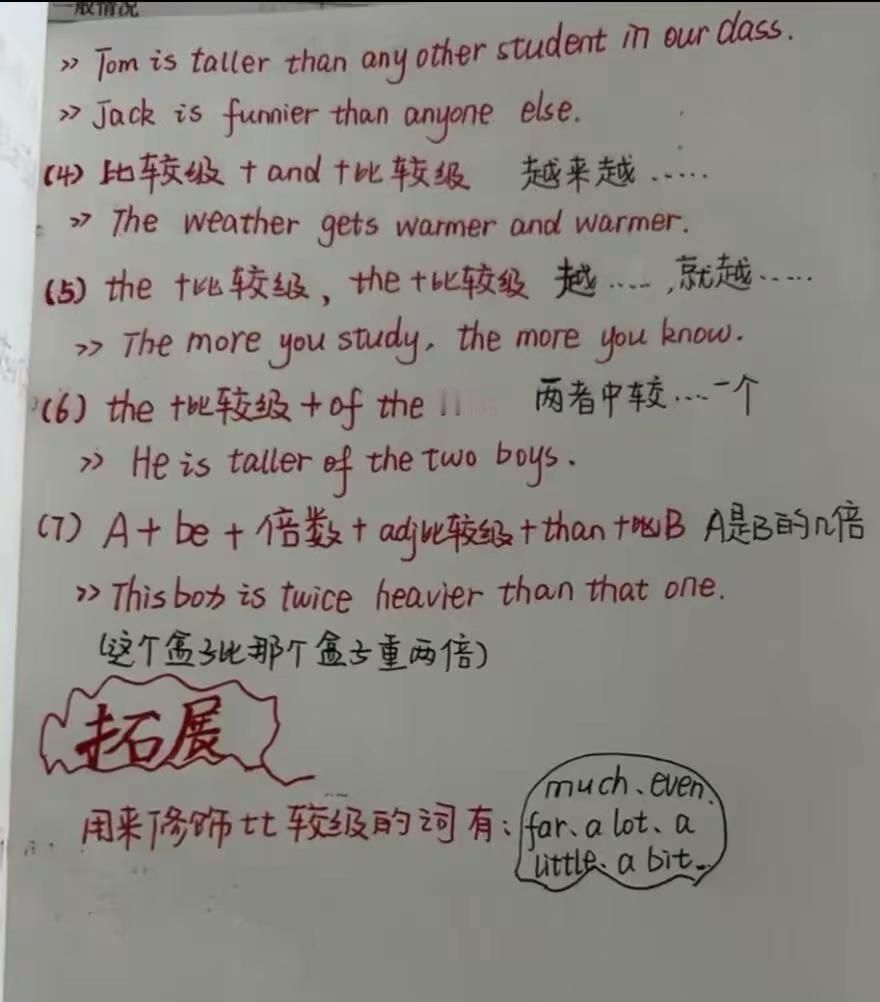 一般情况
>> Tom is taller than any other student in our class.
>> Jack is funnier than anyone else.
(4) 比较级 + and + 比较级 越来越……
>> The weather gets warmer and warmer.
(5) the + 比较级, the + 比较级 越……,就越……
>> The more you study, the more you know.
(6) the + 比较级 + of the 两者中较…一个
>> He is taller of the two boys.
(7) A + be + 倍数 + adj比较级 + than + B A是B的几倍
>> This box is twice heavier than that one.
(这个盒子比那个盒子重两倍)
拓展
用来修饰比较级的词有: much、even、
far、a lot、a
little、a bit…